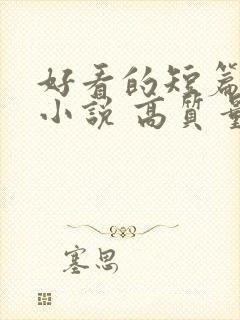 好看的短篇
小说 高质量
塞思